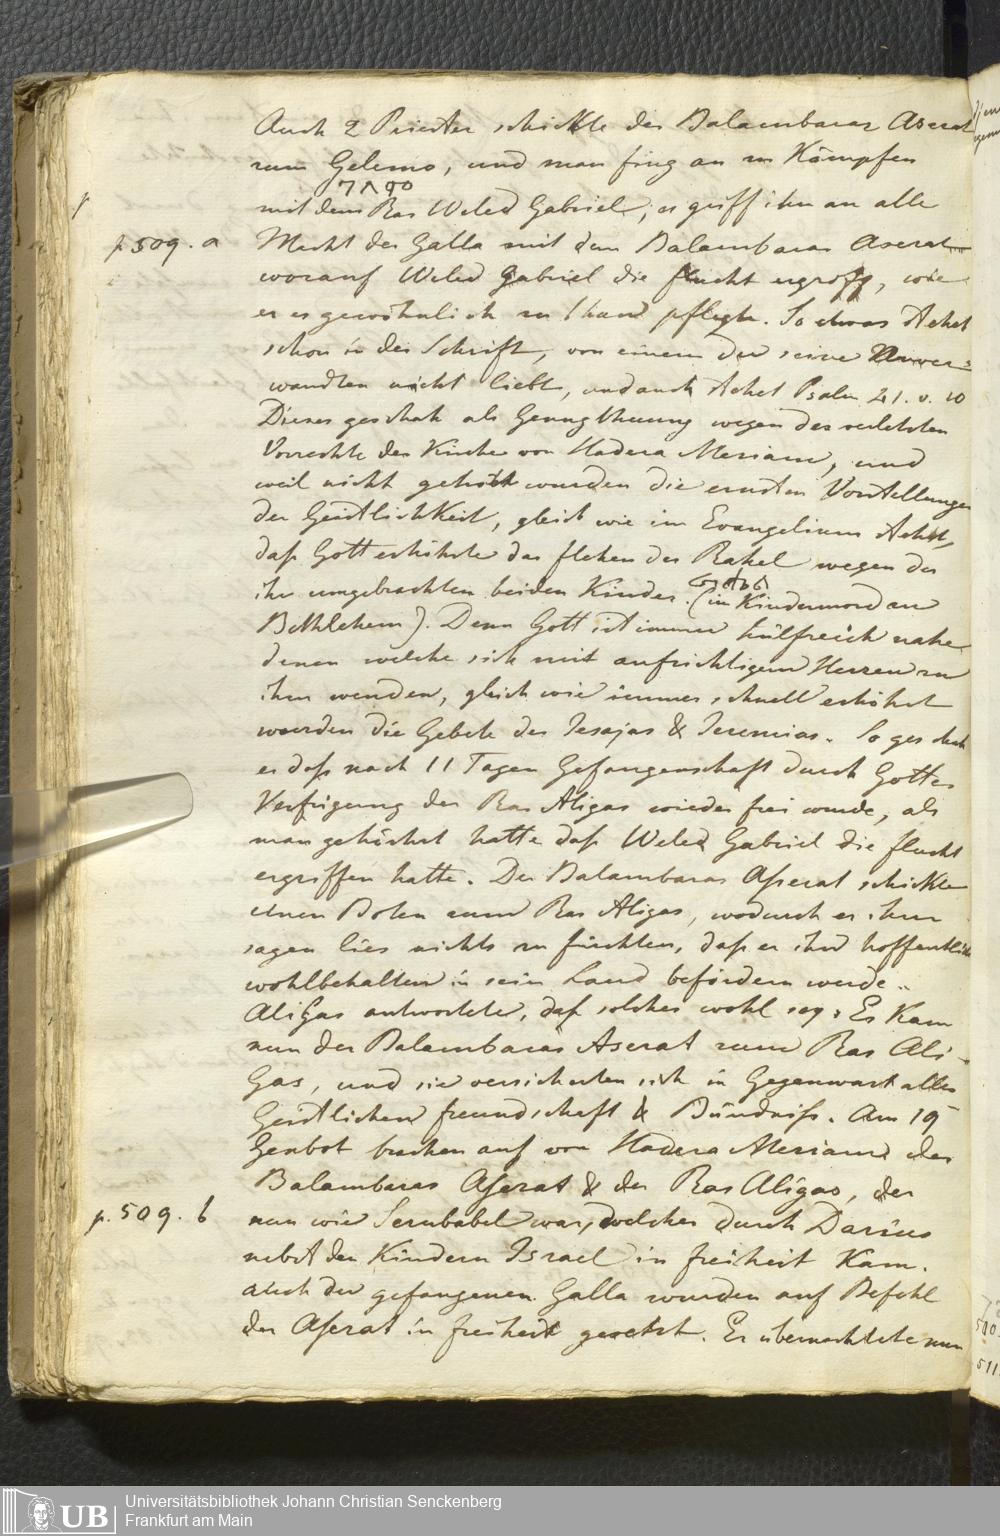 Auch 2 Priester schickte der Balambaras Aserat
zum Gelemo, und man fing an zu Kämpfen
mit dem Ras Weled Gabriel, es griff ihn an alle
p. 509. a
Macht der Galla mit dem Balambaras Aserat
worauf Weled Gabriel die flucht ergriff, wie
er es gewöhnlich zu thun pflegte. So etwas stehet
schon in der Schrift, von einem der seine Anver=
wandten nicht liebt, und auch stehet Psalm 21. v. 10
Dieses geschah als Genugthuung wegen des verletzten
Vorrechts der Kirche von Hadera Meriam, und
weil nicht gehört wurden die ernsten Vorstellungen
der Geistlichkeit, gleich wie im Evangelium stehet,
daß Gott erhöhrte das flehen der Rahel wegen der
ihr umgebrachten beiden Kinder (im Kindermord an
Bethlehem). Denn Gott ist immer hülfreich nahe
denen welche sich mit aufrichtigem Herzen zu
ihm wenden, gleich wie immer schnell erhöhrt
wurden die Gebete des Jesajas & Jeremias. So geschah
es daß nach 11 Tagen Gefangenschaft durch Gottes
Verfügung der Ras Aligas wieder frei wurde, als
man gehöhrt hatte daß Weled Gabriel die flucht
ergriffen hatte. Der Balambaras Aserat schickte
einen Boten zum Ras Aligas, wodurch er ihm
sagen lies nichts zu fürchten, daß er ihn hoffentlich
wohlbehalten in sein Land befördern werde.
AliGas antwortete, daß solches wohl sey. Es Kam
nun der Balambaras Aserat zum Ras Ali-
Gas, und sie versicherten sich in Gegenwart aller
Geistlichen freundschaft & Bündniß. Am 19
Genbot brachen auf von Hadera Meriam der
Balambaras Aserat & der Ras Aligas, der
p. 509. b
nun wie Serubabel war, welcher durch Darius
nebst den Kindern Israel in freiheit Kam.
auch die gefangenen Galla wurden auf Befehl
des Aserat in freiheit gesetzt. Er übernachtete nun
Universitätsbibliothek Johann Christian Senckenberg
Frankfurt am Main
UB